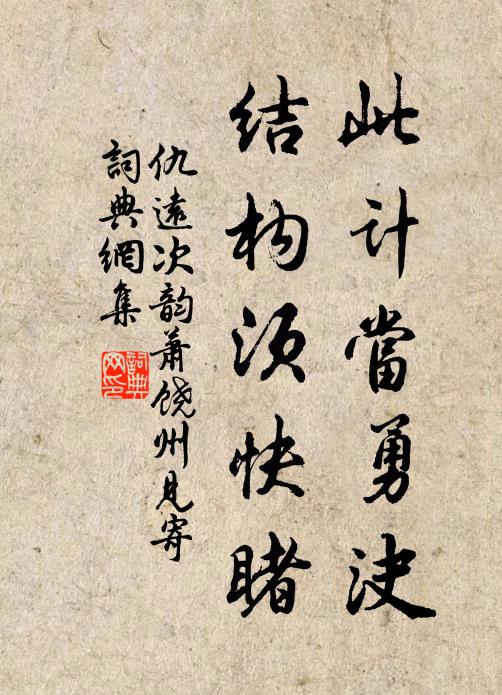 此计當勇决
结构须快睹
仇遠次韵蕭饶州見寄
詞典網集
詞典網印